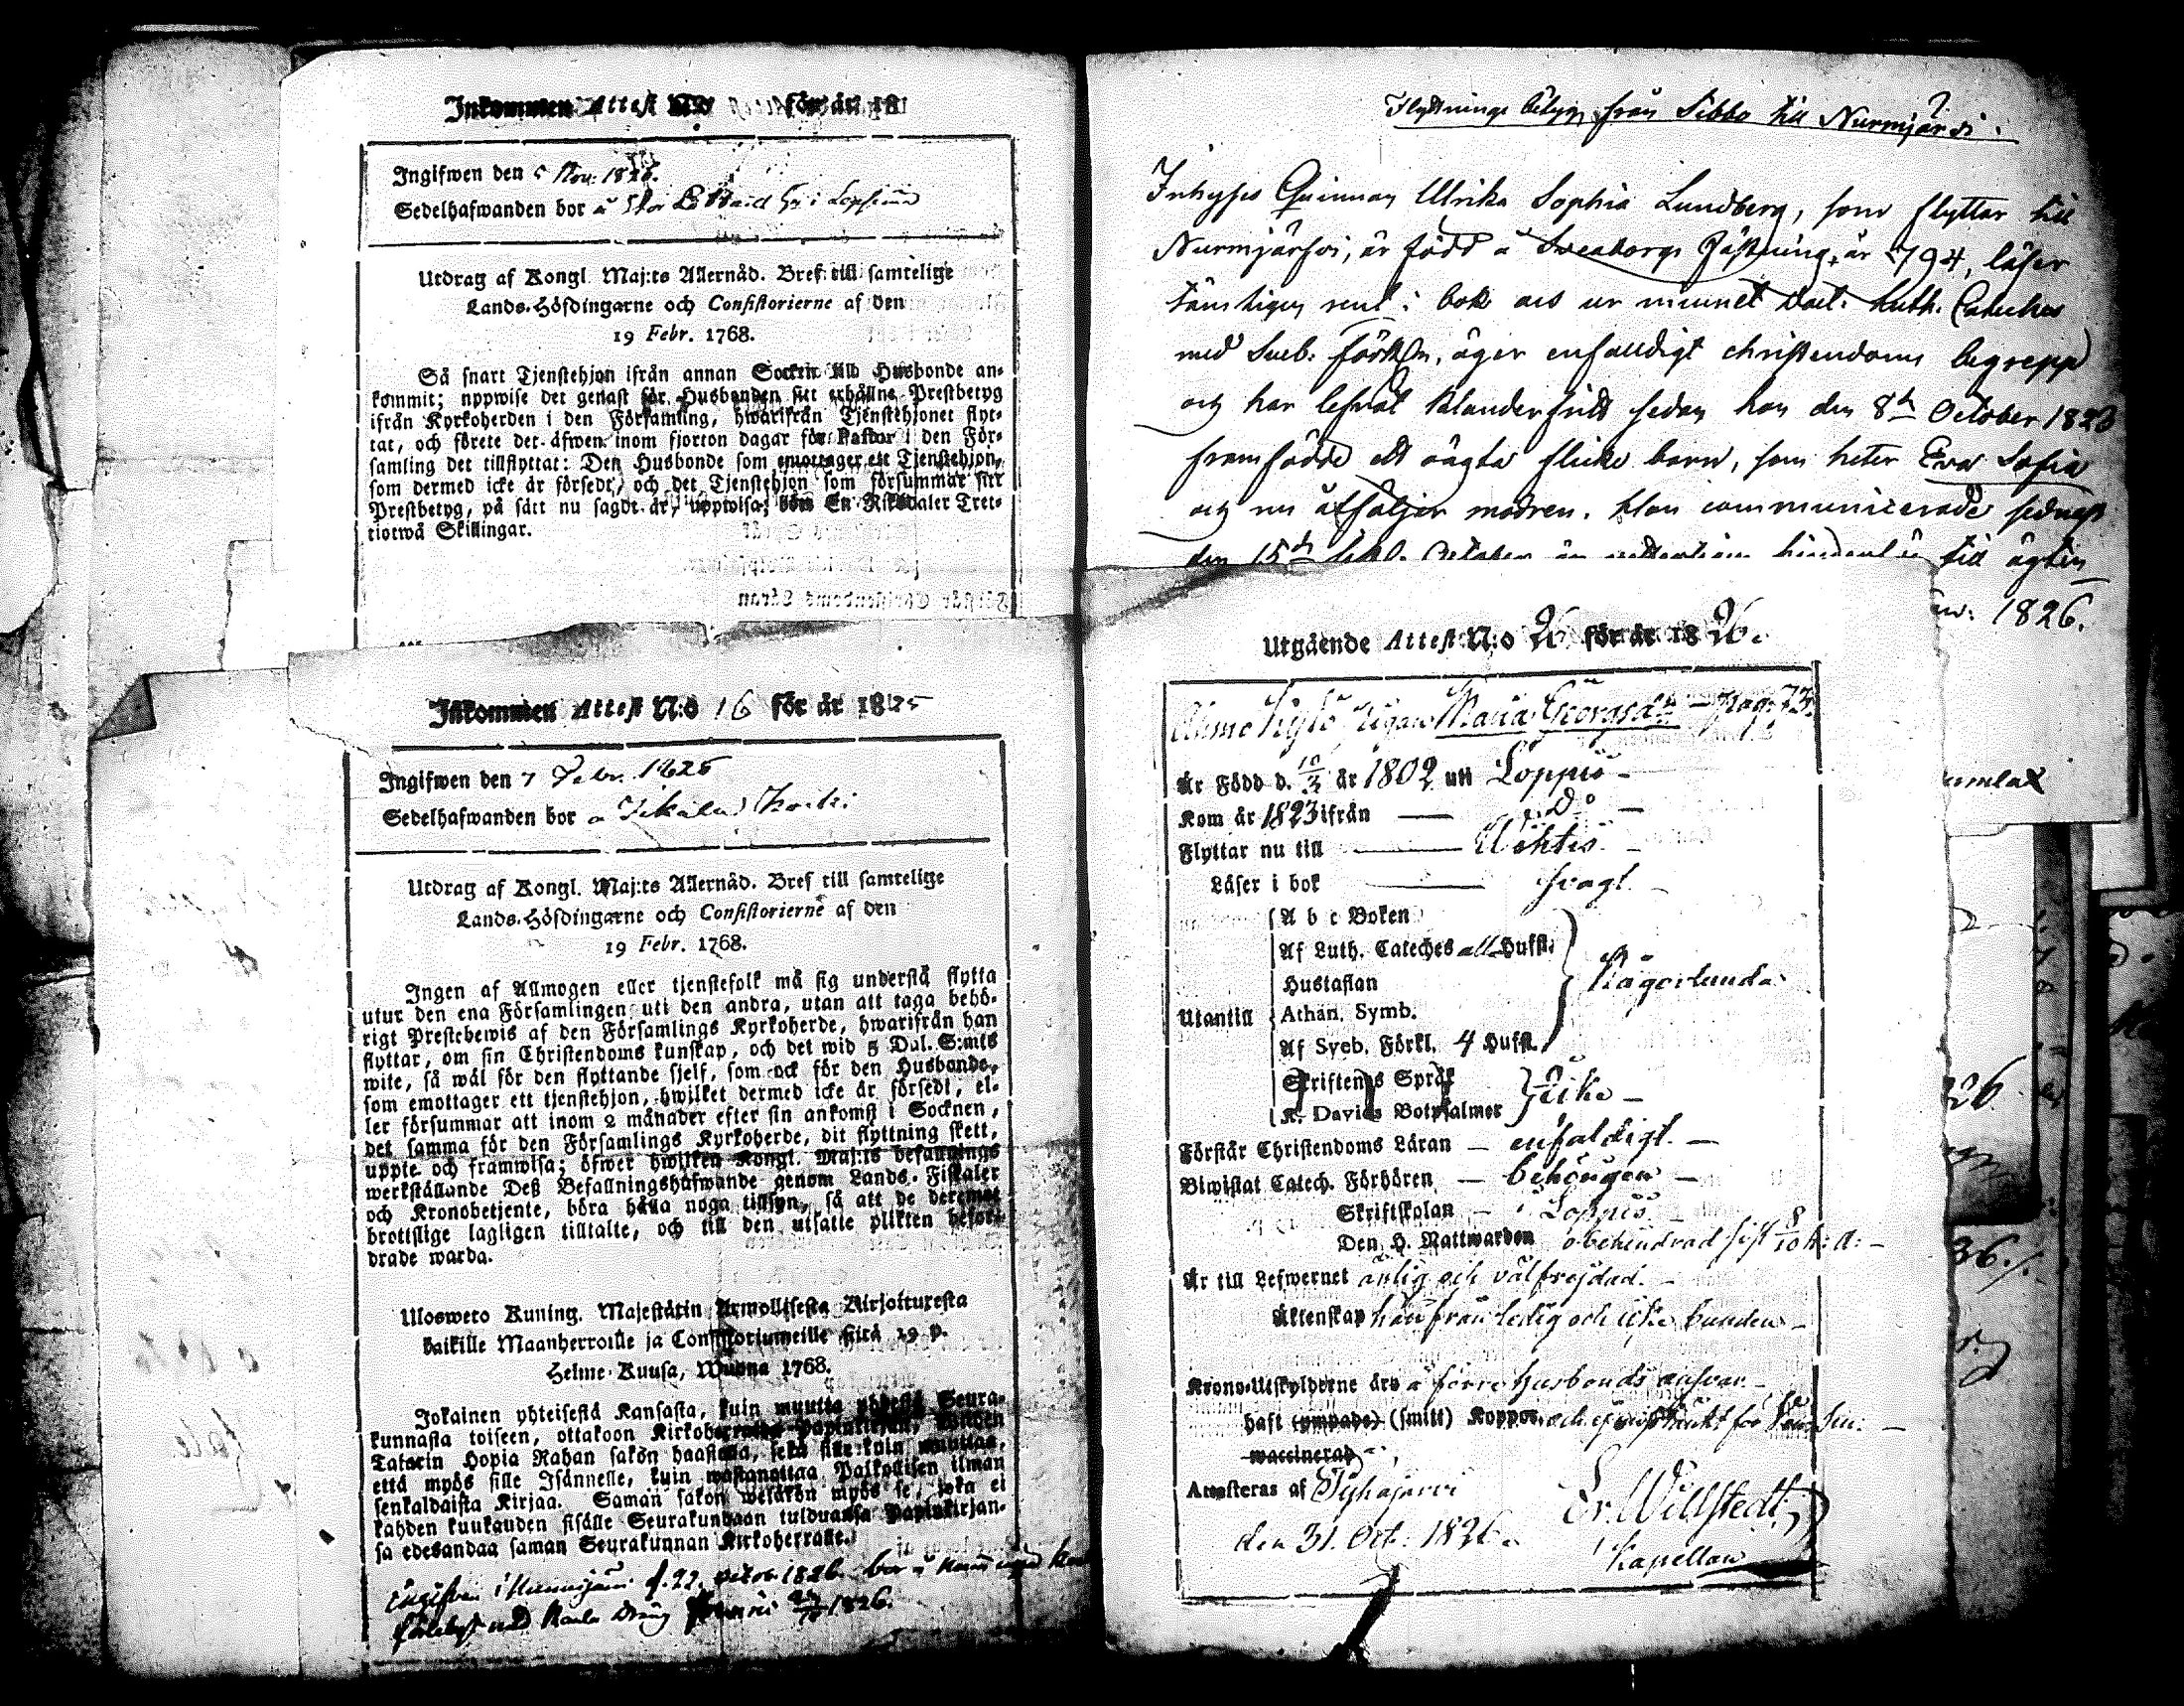 Inkommen Attest N:o för år 18
Ingifwen den 5 Nov: 1826.
Sedelhafwanden bor å Stor
Utdrag af Kongl. Maj:ts Allernåd. Bref till samtelige
Lands-Höfdingarne och Consistorierne af den
19 Febr. 1768.
Så snart Tjenstehjon ifrån annan Socken till Husbonde an-
kommit; uppwise det genast för Husbonden sitt erhållne Prestbetyg
ifrån Kyrkoherden i den Församling, hwarifrån Tjenstehjonet flyt-
tat, och förete det äfwen inom fjorton dagar för Pastor i den För-
samling det tillflyttat: Den Husbonde som emottager ett Tjenstehjon,
som dermed icke är försedt, och det Tjenstehjon som försummar sitt
Prestbetyg, på sätt nu sagdt är, uppwisa; böte En Riksdaler Tret-
tiotwå Skillingar.
Inkommen Attest N:o 16 för år 1825
Ingifwen den 7 Febr. 1825
Sedelhafwanden bor å Ikala
Utdrag af Kongl. Maj:ts Allernåd. Bref till samtelige
Lands-Höfdingarne och Consistorierne af den
19 Febr. 1768.
Ingen af Allmogen eller tjenstefolk må sig understå flytta
utur den ena Församlingen uti den andra, utan att taga behö-
rigt Prestebewis af den Församlings Kyrkoherde, hwarifrån han
flyttar, om sin Christendoms kunskap, och det wid 5 Dal. S:mts
wite, så wäl för den flyttande sjelf, som ock för den Husbonde,
som emottager ett tjenstehjon, hwilket dermed icke är försedt, el-
ler försummar att inom 2 månader efter sin ankomst i Socknen,
det samma för den Församlings Kyrkoherde, dit flyttning skett,
uppte och framwisa; öfwer hwilken Kongl. Maj:ts befallnings
werkställande Deß Befallningshafwande genom Lands-Fiskaler
och Kronobetjente, böra hålla noga tillsyn, så att de deremot
brottslige lagligen tilltalte, och till den utsatte plikten befor-
drade warda.
Ulosweto Kuning. Majestätin Armollisesta Kirjoituxesta
kaikille Maanherroille ja Consistoriumeille siitä 19 p.
Helme-Kuusa, Wuona 1768.
Jokainen yhteisestä Kansasta, kuin muutta yhdestä Seura-
kunnasta toiseen, ottakoon Kirkoherralda Papinkirjan, Wiiden
Talarin Hopia Rahan sakon haastolla, sekä sille kuin muuttaa,
että myös sille Isännelle, kuin wastanottaa Palkollisen ilman
senkaldaista Kirjaa. Saman sakon wetäkön myös se, joka ei
kahden kuukauden sisälle Seurakundaan tulduansa Papinkirjan-
sa edesandaa saman Seurakunnan Kirkoherralle.
d. 22 octob. 1826. bor å
med 1826.
Flyttnings betyg från Sibbo till Nurmijärvi.
Inhyses Qvinnan Ulrika Sophia Lundberg, som flyttar till
Nurmijärfvi, är född å Sveaborgs Fästning, år 1794, läser
tämligen rent i bok och ur minnet Doct. Luth. Cateches
med Sveb. förkl:n, äger enfalldigt christendoms begrepp
och har lefvat klanderfritt sedan hon den 8de October 1823
framfödde ett oägta flicke barn, som heter Eva Sofia
och nu åtföljer modren. Hon communicerade sednast
den 15de October är till ägten
1826.
Utgående Attest N:o 26 för år 1826.
Pigan Maria Georgsdr pag: 73.
Är Född d. 10/3 år 1802 uti Loppis –
Kom år 1823 ifrån — Do —
Flyttar nu till — Wihtis –
Läser i bok — svagt –
Utantill
A b c Boken
Af Luth. Cateches all Hufst.
Hustaflan
Athan. Symb.
Af Sveb. Förkl. 4 Hufst.
någorlunda
Skriftenes Språk
K. Davids Botpsalmer
icke –
Förstår Christendoms Läran – enfaldigt. –
Biwistat Catech. Förhören – behörigen –
Skriftskolan – i Loppis –
Den H. Nattwarden obehindrad sist 8/10 h: a: –
Är till Lefwernet ärlig och välfrejdad. –
Äktenskap härifrån ledig och icke bunden –
Krono-Utskylderne äro å förre Husbonds ansvar –
haft (ympade) (smitt) Koppor och
waccinerad
Attesteras af Pyhäjärvi
den 31. Oct: 1826.
Er. Willstedt
Kapellan
umlax
326
36./.